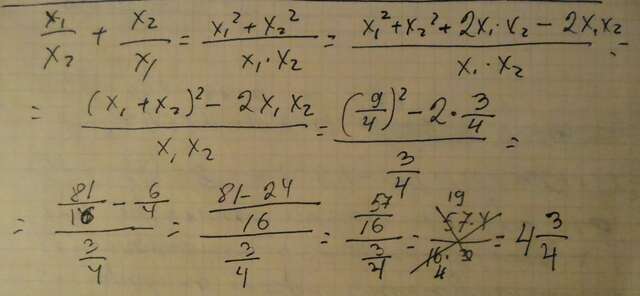 x₁/x₂ + x₂/x₁ = (x₁² + x₂²)/(x₁·x₂) = (x₁² + x₂² + 2x₁·x₂ − 2x₁x₂)/(x₁·x₂) =
= ((x₁ + x₂)² − 2x₁x₂)/(x₁x₂) = ((9/4)² − 2·3/4)/(3/4) =
= (81/16 − 6/4)/(3/4) = ((81−24)/16)/(3/4) = (57/16)/(3/4) = 19 57·4/(16·3) 4 = 4 3/4